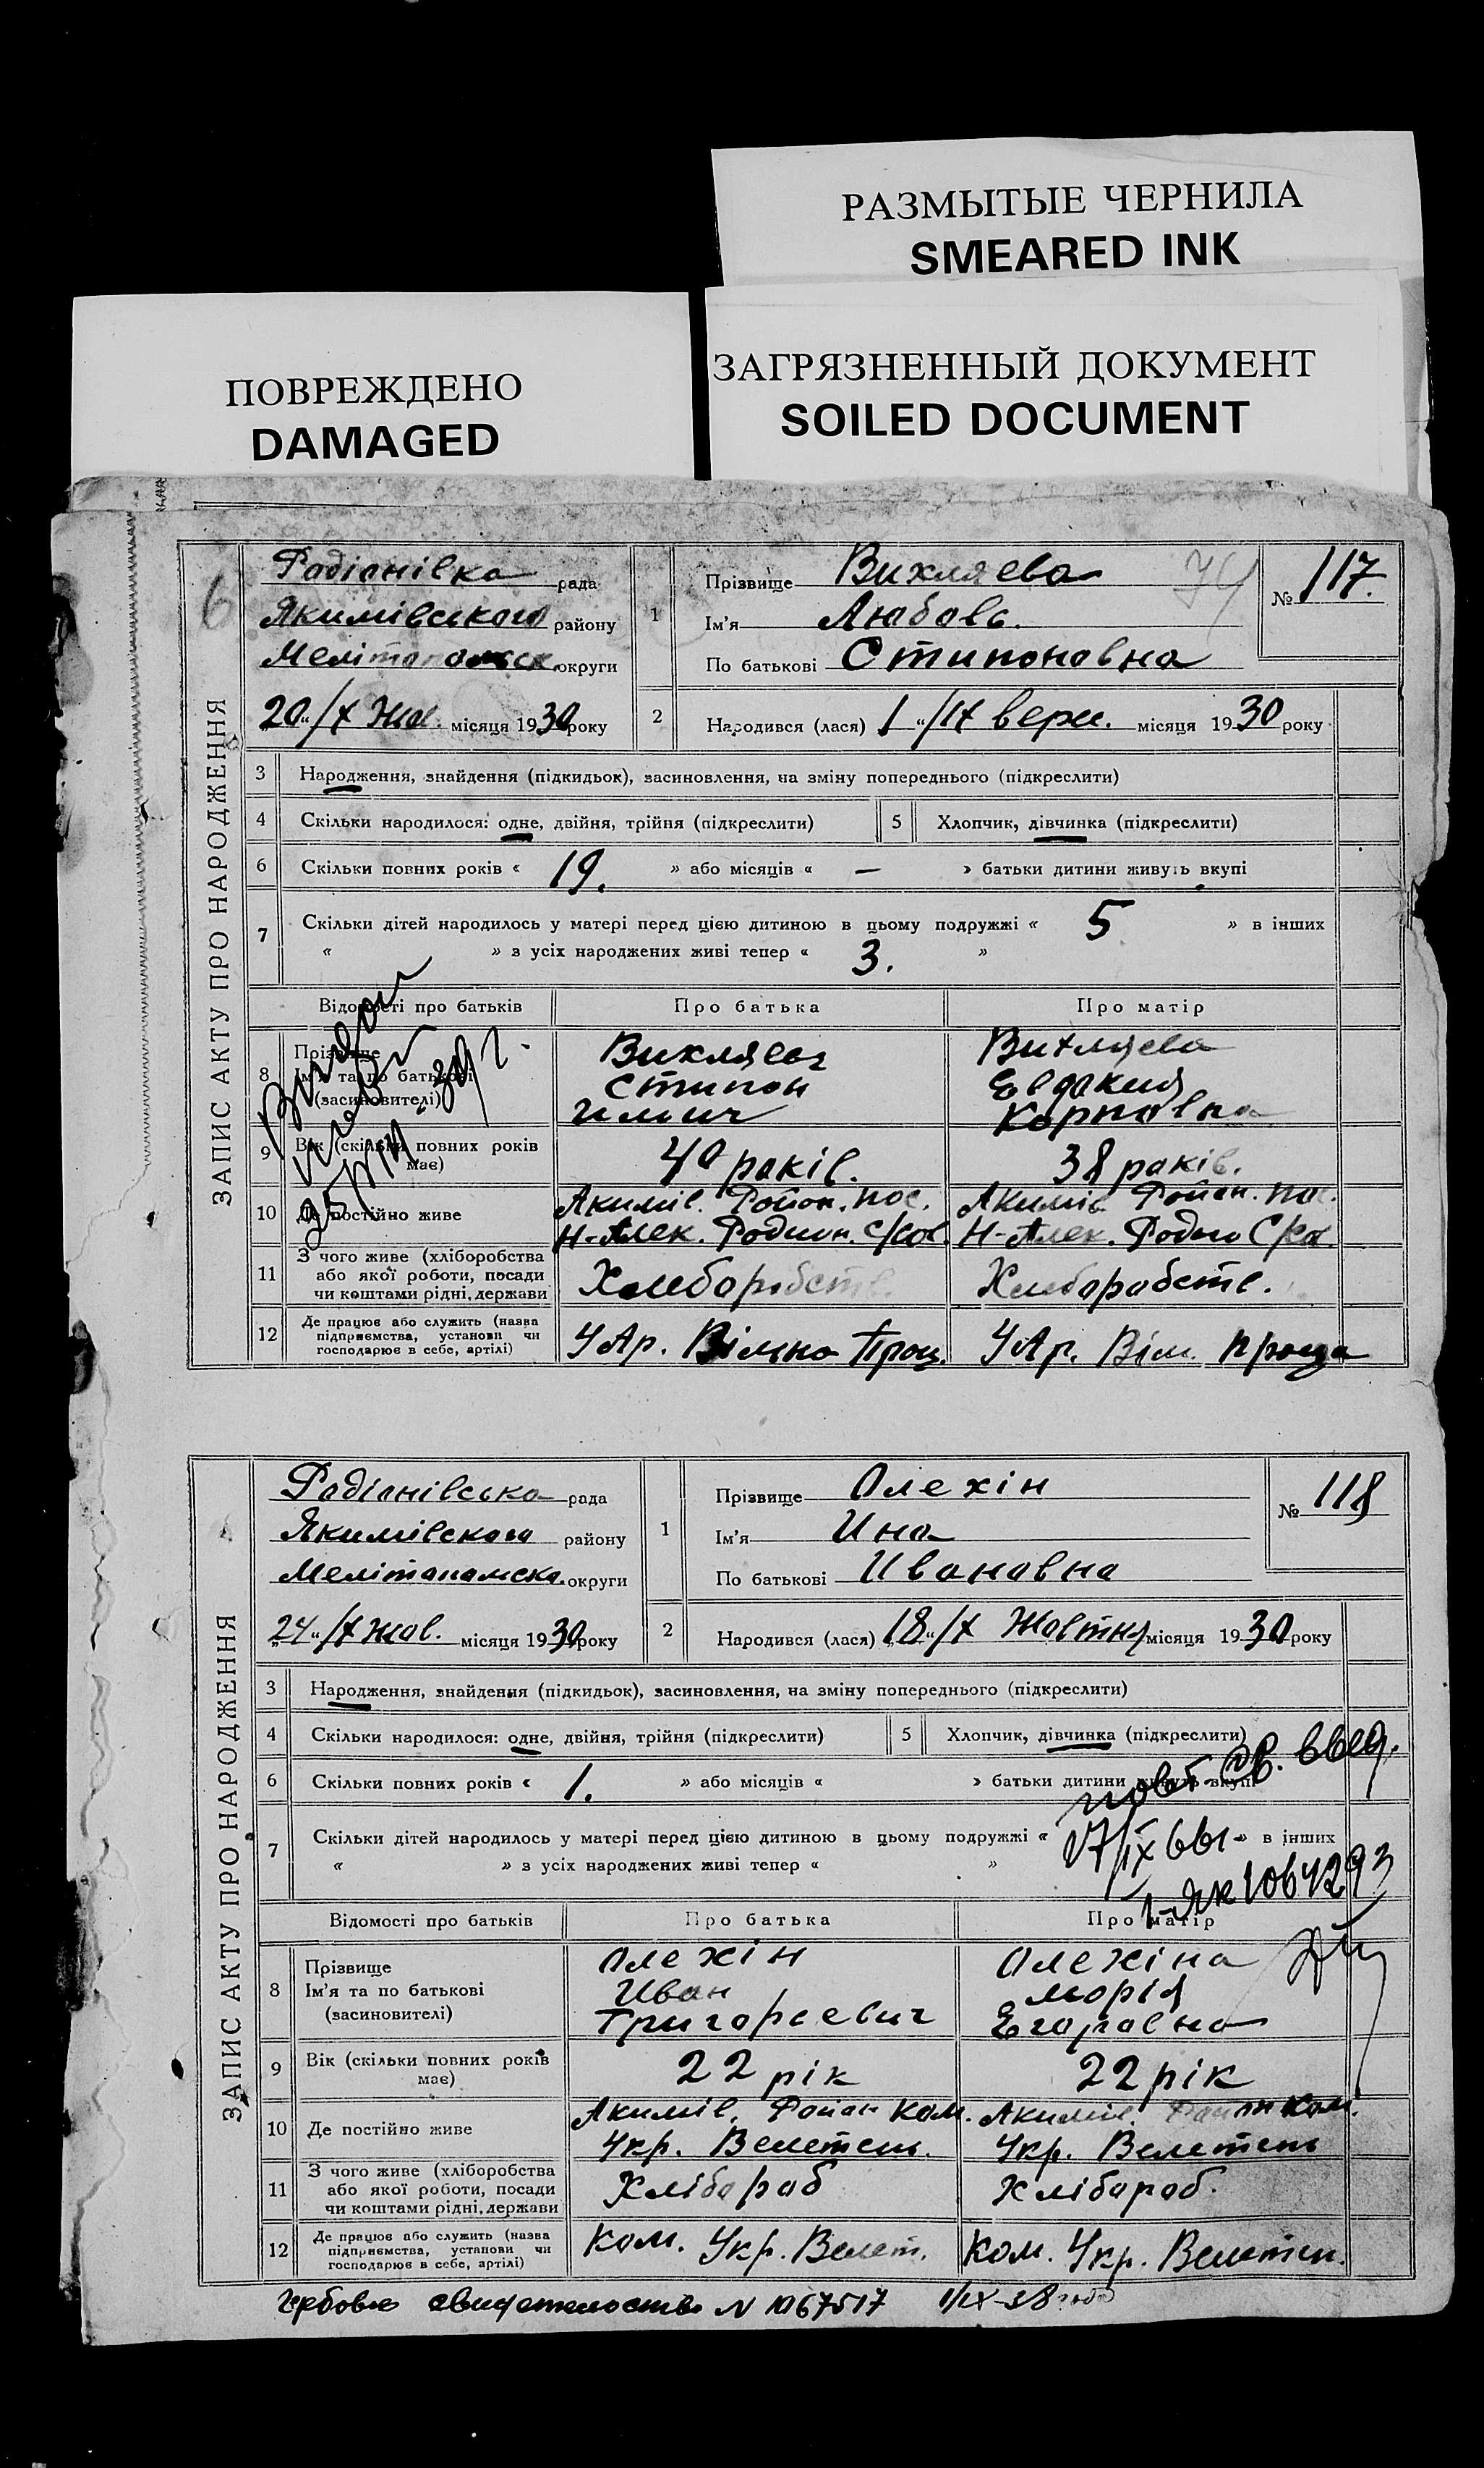 РАЗМЫТЫЕ ЧЕРНИЛА
SMEARED INK
ПОВРЕЖДЕНО
DAMAGED
ЗАГРЯЗНЕННЫЙ ДОКУМЕНТ
SOILED DOCUMENT
ЗАПИС АКТУ ПРО НАРОДЖЕННЯ
6
Радіанівка рада
Якимівського району
округи
20 " /X Жов. місяця 1930 року
1
Прізвище Вихляева
Ім'я Любовь.
По батькові Стипоновна
74
№ 117.
2
Народився (лася) 1 " /IX верн. місяця 1930 року
3 Народження, знайдення (підкидьок), засиновлення, на зміну попереднього (підкреслити)
4 Скільки народилося: одне, двійня, трійня (підкреслити)
5 Хлопчик, дівчинка (підкреслити)
6 Скільки повних років « 19. » або місяців « — » батьки дитини живуть вкупі
7 Скільки дітей народилось у матері перед цією дитиною в цьому подружжі « 5 » в інших
« » з усіх народжених живі тепер « 3. »
Відомості про батьків Про батька Про матір
8 Прізвище
Ім'я та по батькові
(засиновителі)
Вихляева
Стипон
Илич
Вихляева
Евдокия
Карповна
9 Вік (скільки повних років має)
40 років.
38 років.
10 Де постійно живе
Акимів. Район. пос.
Н-Алек. Родион. с/сов.
Акимів Район. пос.
Н-Алек. Родио С/со.
11 З чого живе (хліборобства
або якої роботи, посади
чи коштами рідні, держави
Хлеборобств.
Хлеборобств.
12 Де працює або служить (назва
підприємства, установи чи
господарює в себе, артілі)
УАр. Вільно Прац.
УАр. Віл. Праця
ЗАПИС АКТУ ПРО НАРОДЖЕННЯ
Радіанівсько рада
Якимівского району
Мелітопольско. округи
24 " /X жов. місяця 1930 року
1
Прізвище Олехін
Ім'я Ина
По батькові Ивановна
№ 118
2
Народився (лася) 18 " /X Жовтня місяця 1930 року
3 Народження, знайдення (підкидьок), засиновлення, на зміну попереднього (підкреслити)
4 Скільки народилося: одне, двійня, трійня (підкреслити)
5 Хлопчик, дівчинка (підкреслити)
6 Скільки повних років « 1. » або місяців « » батьки дитини живуть вкупі
7 Скільки дітей народилось у матері перед цією дитиною в цьому подружжі « » в інших
« » з усіх народжених живі тепер « »
Відомості про батьків Про батька Про матір
8 Прізвище
Ім'я та по батькові
(засиновителі)
Олехін
Иван
Григорьевич
Олехіна
Марія
Егоровна
9 Вік (скільки повних років має)
22 рік
22 рік
10 Де постійно живе
Акимів. Район Ком.
Укр. Велетень.
Акимів. Район Ком.
Укр. Велетень
11 З чого живе (хліборобства
або якої роботи, посади
чи коштами рідні, держави
Хлібороб
Хлібороб.
12 Де працює або служить (назва
підприємства, установи чи
господарює в себе, артілі)
Ком. Укр. Велет.
Ком. Укр. Велетен.
Гербово свидетельство N 1067517 1/IX-38 года